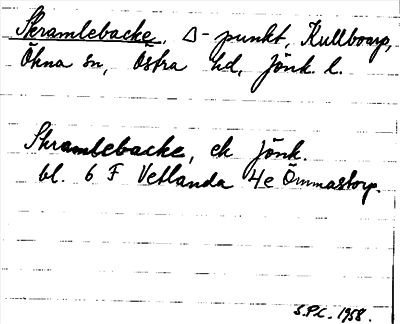 Skramlebacke, Δ-punkt, Kullboarp,
Ökna sn, Östra hd, Jönk. l.
Skramlebacke, ek Jönk.
bl. 6 F Vetlanda 4e Ömmastorp.
S.P.C. 1958.